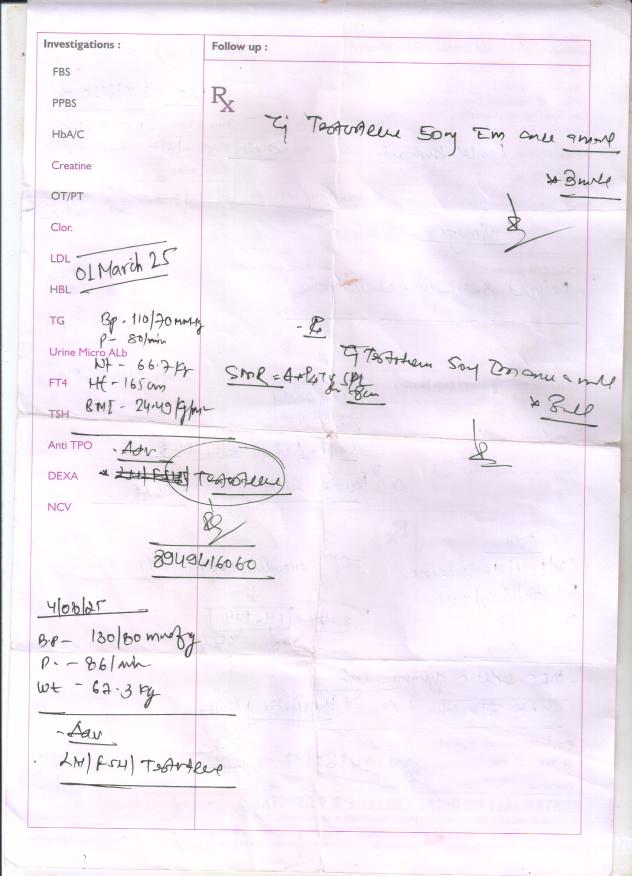 Investigations :
Follow up :
FBS
Rx
PPBS
Inj Testosterone 50mg IM once a month
HbA/C
× 3 month
Creatine
OT/PT
Clor.
LDL
01 March 25
HBL
TG
Bp - 110/70 mmHg
P - 80/min
Urine Micro ALb
Wt - 66.7 Kg
Inj Testosterone 50mg once a month
FT4
Ht - 165cm
SMR = A+P4 T
× 3 month
TSH
BMI - 24.49 Kg/m2
Anti TPO
- Adv
DEXA
* LH/FSH/ Testosterone
NCV
8949416060
4/08/25
B.P - 130/80 mmHg
P. - 86/min
Wt - 67.3 Kg
- Adv
LH/FSH/Testosterone